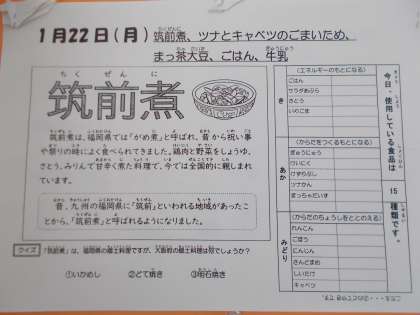 1月22日(月) 筑前煮、ツナとキャベツのごまいため、
まっ茶大豆、ごはん、牛乳
ちくぜんに
筑前煮
筑前煮は、福岡県では「がめ煮」と呼ばれ、昔から祝い事
や祭りの時によく食べられてきました。鶏肉と野菜をしょうゆ、
さとう、みりんで甘辛く煮た料理で、今では全国的に親しまれ
ています。
昔、九州の福岡県に「筑前」といわれる地域があったこ
とから、「筑前煮」と呼ばれるようになりました。
クイズ 「筑前煮」は、福岡県の郷土料理ですが、大阪府の郷土料理は何でしょうか?
①いかめし ②どて焼き ③明石焼き
今日、使用している食品は
15
種類です。
(エネルギーのもとになる)
き
ごはん
サラダあぶら
さとう
いりごま
(からだをつくるもとになる)
あか
ぎゅうにゅう
けいにく
けずりぶし
ツナかん
まっちゃだいず
(からだのちょうしをととのえる)
みどり
れんこん
ごぼう
にんじん
さんどまめ
しいたけ
キャベツ